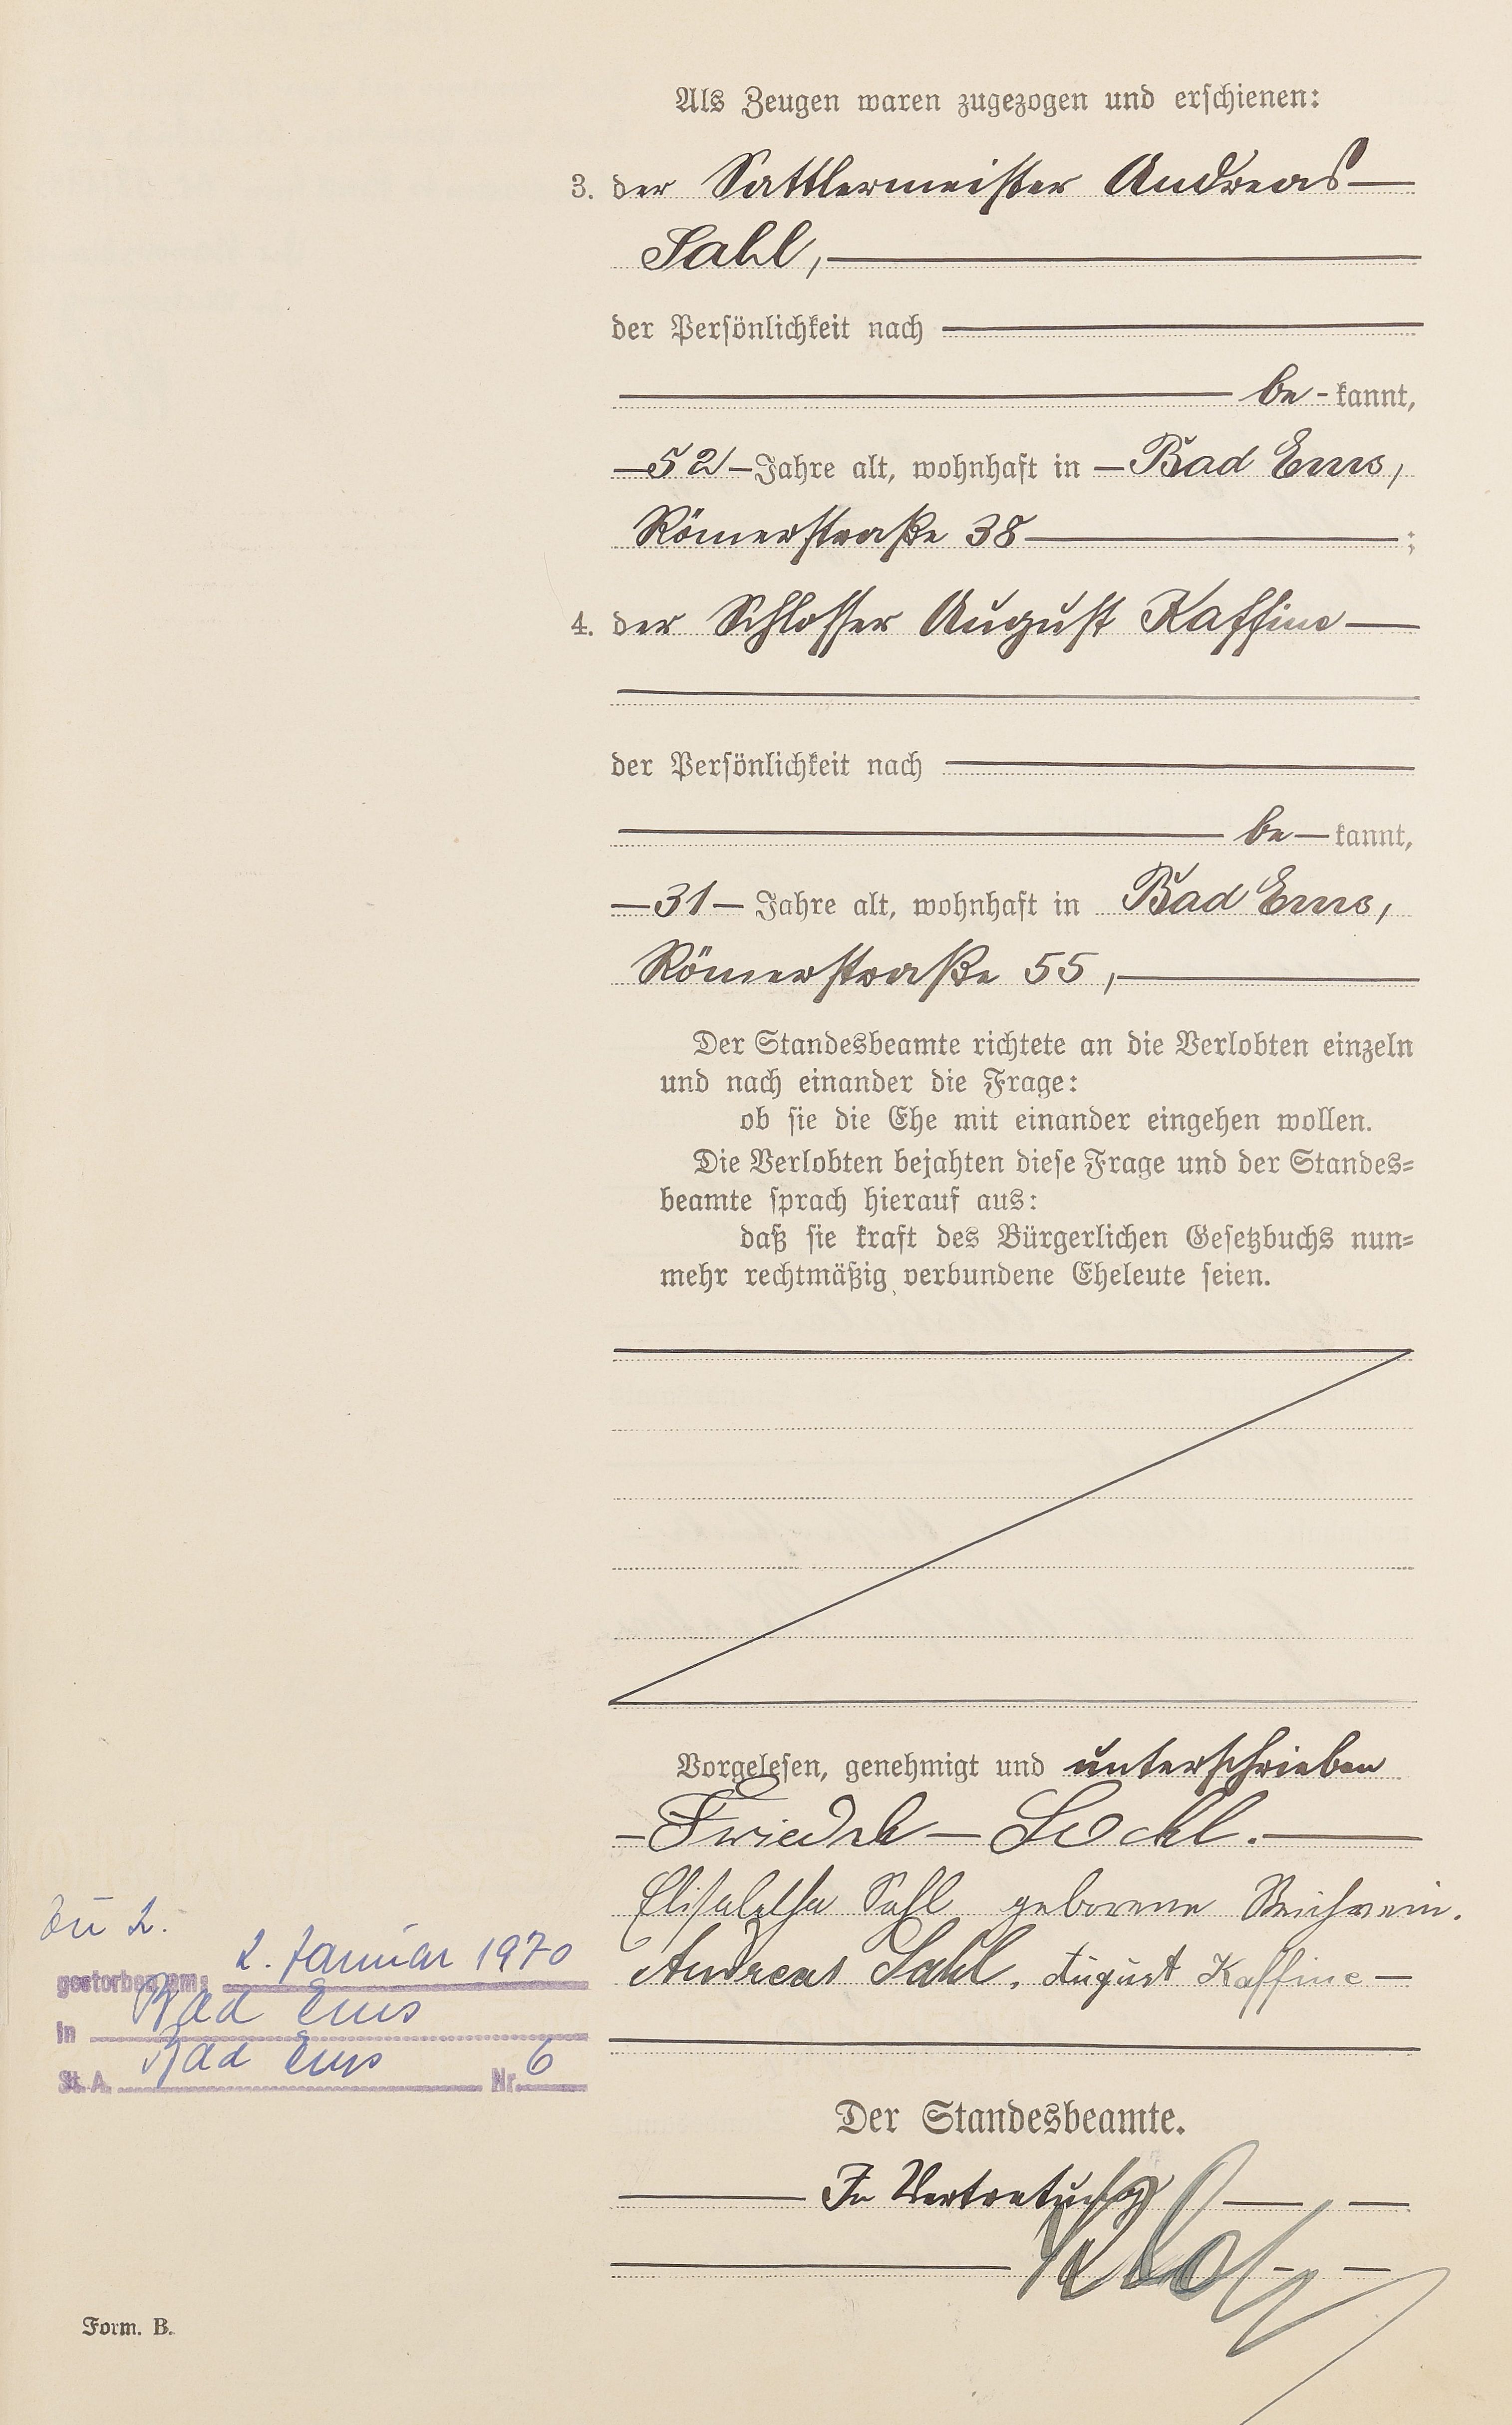 Als Zeugen waren zugezogen und erschienen:
3. der Sattlermeister Andreas
Sahl,
der Persönlichkeit nach
be-kannt,
52 Jahre alt, wohnhaft in Bad Ems,
Römerstraße 38;
4. der Schlosser August Kaffine
der Persönlichkeit nach
be-kannt,
31 Jahre alt, wohnhaft in Bad Ems,
Römerstraße 55,
Der Standesbeamte richtete an die Verlobten einzeln
und nach einander die Frage:
ob sie die Ehe mit einander eingehen wollen.
Die Verlobten bejahten diese Frage und der Standes=
beamte sprach hierauf aus:
daß sie kraft des Bürgerlichen Gesetzbuchs nun=
mehr rechtmäßig verbundene Eheleute seien.
Vorgelesen, genehmigt und unterschrieben
Elisabetha Sahl geborene Reichwein.
Andreas Sahl. August Kaffine
Zu 2.
gestorben am: 2. Januar 1970
in Bad Ems
St. A. Bad Ems Nr. 6
Der Standesbeamte.
In Vertretung
Form. B.